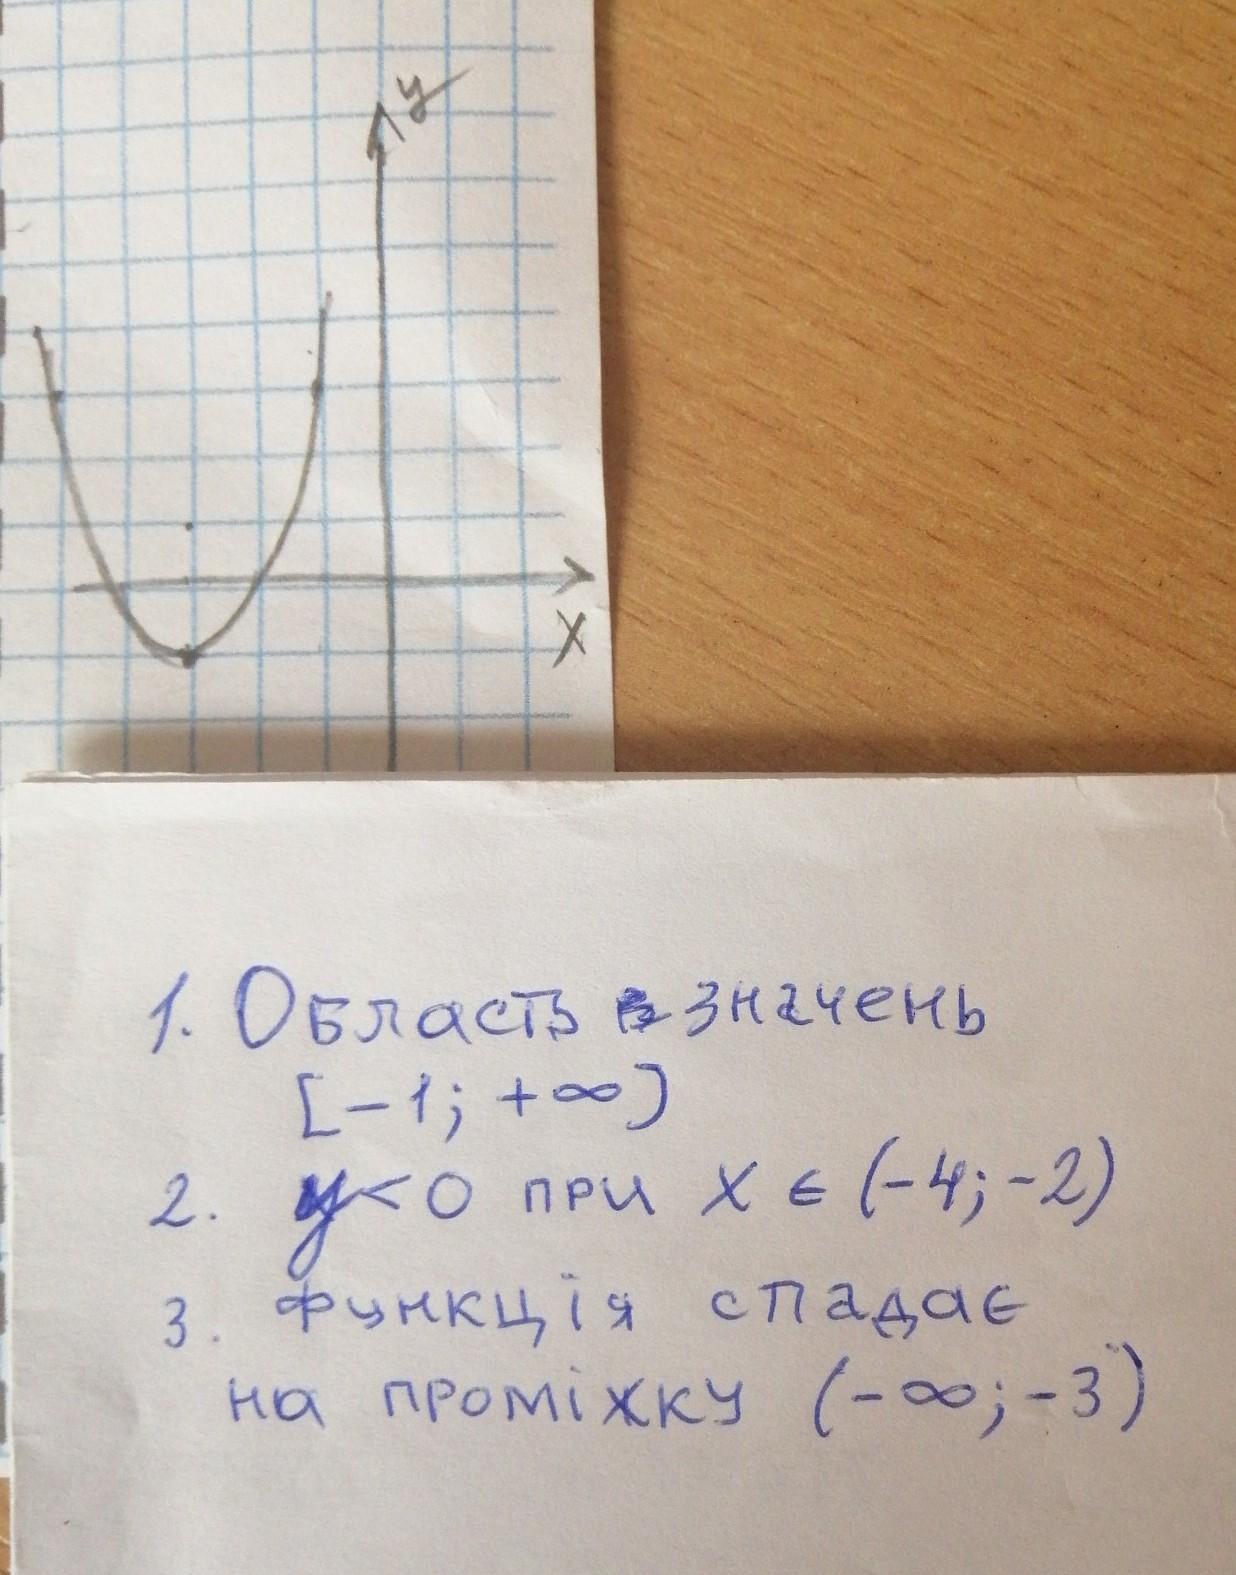 y
x
1. Область значень
[-1; +∞)
2. y<0 при x ∈ (-4; -2)
3. функція спадає
на проміжку (-∞; -3)